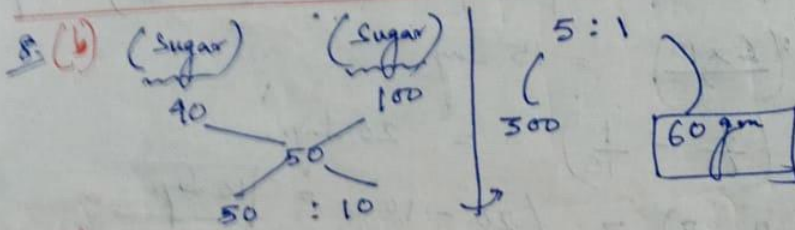 8. (b) (Sugar) (Sugar)
40 100
50
50 : 10
5 : 1
300 60 gm